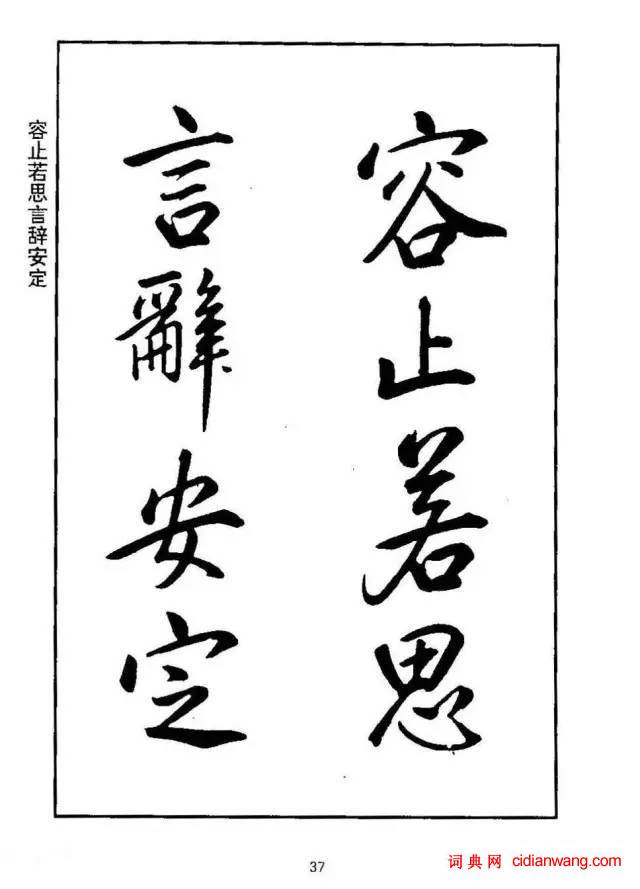 容止若思
言辭安定
容止若思言辞安定
37
词典网 cidianwang.com